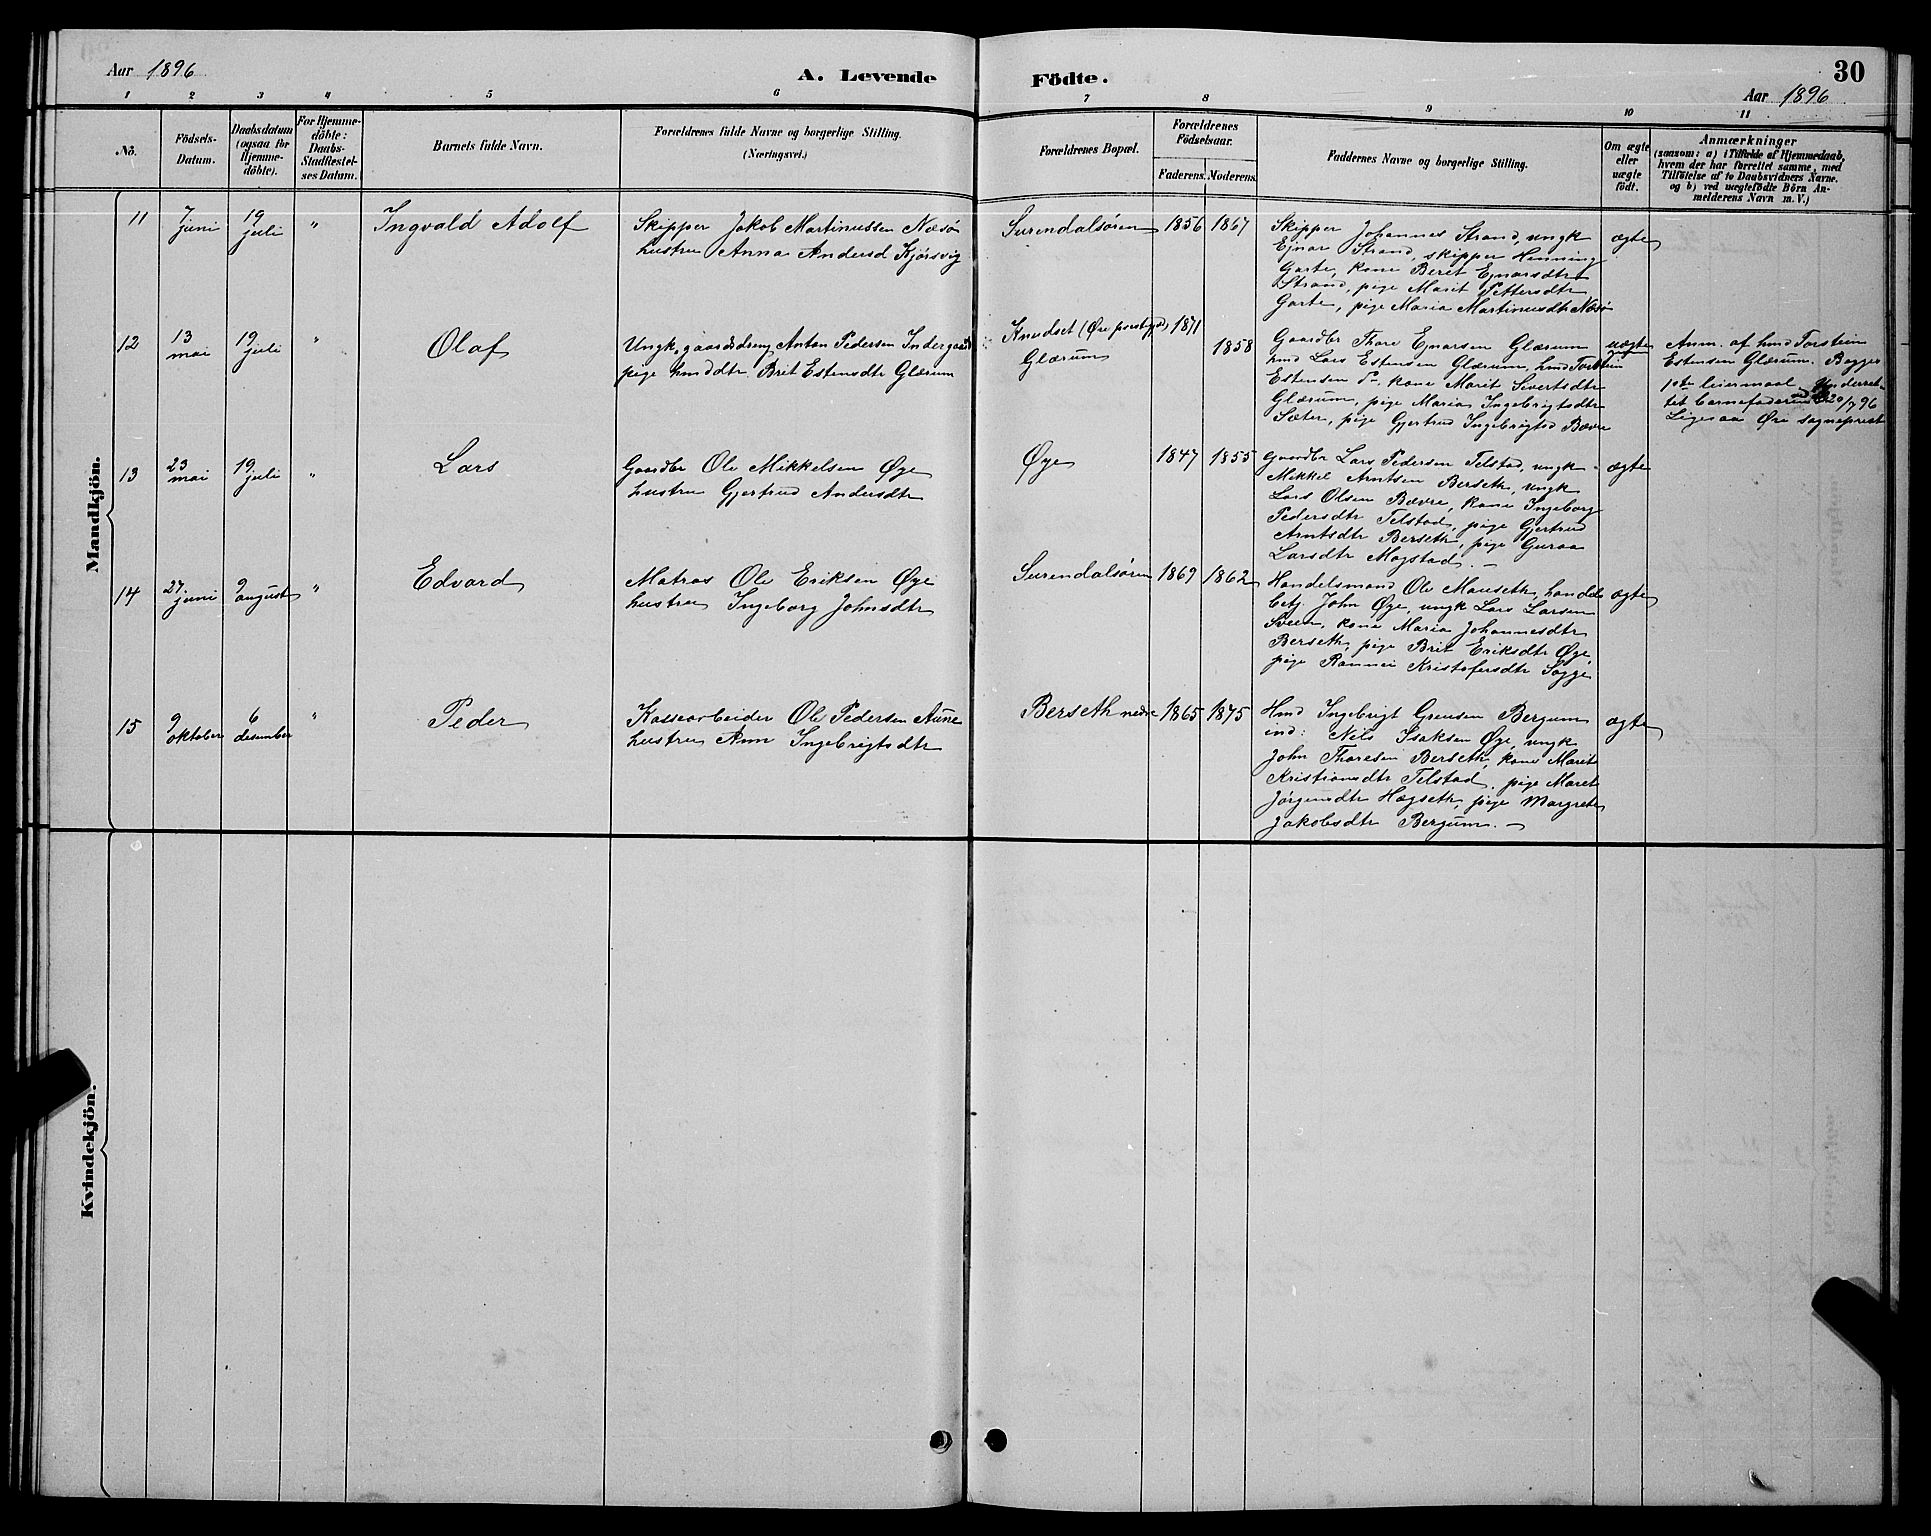 Aar 1896
A. Levende Födte.
30
Aar 1896
1 2 3 4 5 6 7 8 9 10 11
No.
Födsels-
Datum.
Daabsdatum
(ogsaa for
Hjemme-
döbte).
For Hjemme-
döbte:
Daabs-
Stadfæstel-
ses Datum.
Barnets fulde Navn.
Forældrenes fulde Navne og borgerlige Stilling.
(Næringsvei.)
Forældrenes Bopæl.
Forældrenes
Födselsaar.
Faderens. Moderens.
Faddernes Navne og borgerlige Stilling.
Om ægte
eller
uægte
födt.
Anmærkninger
(saasom: a) i Tilfælde af Hjemmedaab,
hvem der har forrettet samme, med
Tilföielse af to Daabsvidners Navne.
og b) ved uægtefödte Börn An-
melderens Navn m. V.)
Mandkjön.
11
7
juni
19
juli
"
Ingvald Adolf
Skipper Jakob Martinussen Næsø
hustru Anna Andersd Kjørsvig
Surendalsøren
1856 1867
Skipper Johannes Strand, ungk
Ejnar Strand, skipper Henning
Garte, kone Beret Ejnarsdtr
Strand, pige Marit Pettersdtr
Garte, pige Maria Martinusdtr Næsø
ægte
12
13
mai
19
juli
"
Olaf
Ungk, gaardsdreng Anton Pedersen Indergaard
pige hmddtr Brit Estensdtr Glærum
Knudset (Øre prestgjd)
Glærum
1871
1858
Gaardbr Thore Ejnarsen Glærum
hmd Lars Estensen Glærum, hmd Torstein
Estensen do, kone Marit Sivertsdtr
Glærum, pige Maria Ingebrigtsdtr
Sæter, pige Gjertrud Ingebrigtsd Bævre
uægte
Anm. af hmd Torstein
Estensen Glærum. Begges
1ste leiermaal. Underret-
tet barnefaderen 20/7 96
Ligesaa Øre sogneprest
13
23
mai
19
juli
"
Lars
Gaardbr Ole Mikkelsen Øye
hustru Gjertrud Andersdtr
Øye
1847 1855
Gaardbr Lars Pedersen Telstad, ungk
Mikkel Arntsen Berseth, ungk
Lars Olsen Bævre, kone Ingeborg
Pedersdtr Telstad, pige Gjertrud
Arntsdtr Berseth, pige Guraa
Larsdtr Mogstad. -
ægte
14
27
juni
9
august
"
Edvard
Matros Ole Eriksen Øye
hustru Ingeborg Johnsdtr
Surendalsøren
1869 1862
Handelsmand Ole Mauseth, handels
betj. John Øye, ungk Lars Larsen
Sveen, kone Maria Johannesdtr
Berseth, pige Brit Eriksdtr Øye,
pige Rannei Kristofersdtr Sogge
ægte
15
9
oktober
6
desember
"
Peder
Ole Pedersen Aune
hustru Ane Ingebrigtsdtr
Berseth nedre
1865 1875
Hmd Ingebrigt Bergum
ind: Nels Isaksen Øye, ungk
John Thoresen Berseth, kone Marit
Kristiansdtr Telstad, pige Maret
Jørgensdtr Hægseth, pige Margrete
Jakobsdtr Bergum. -
ægte
Kvindekjön.